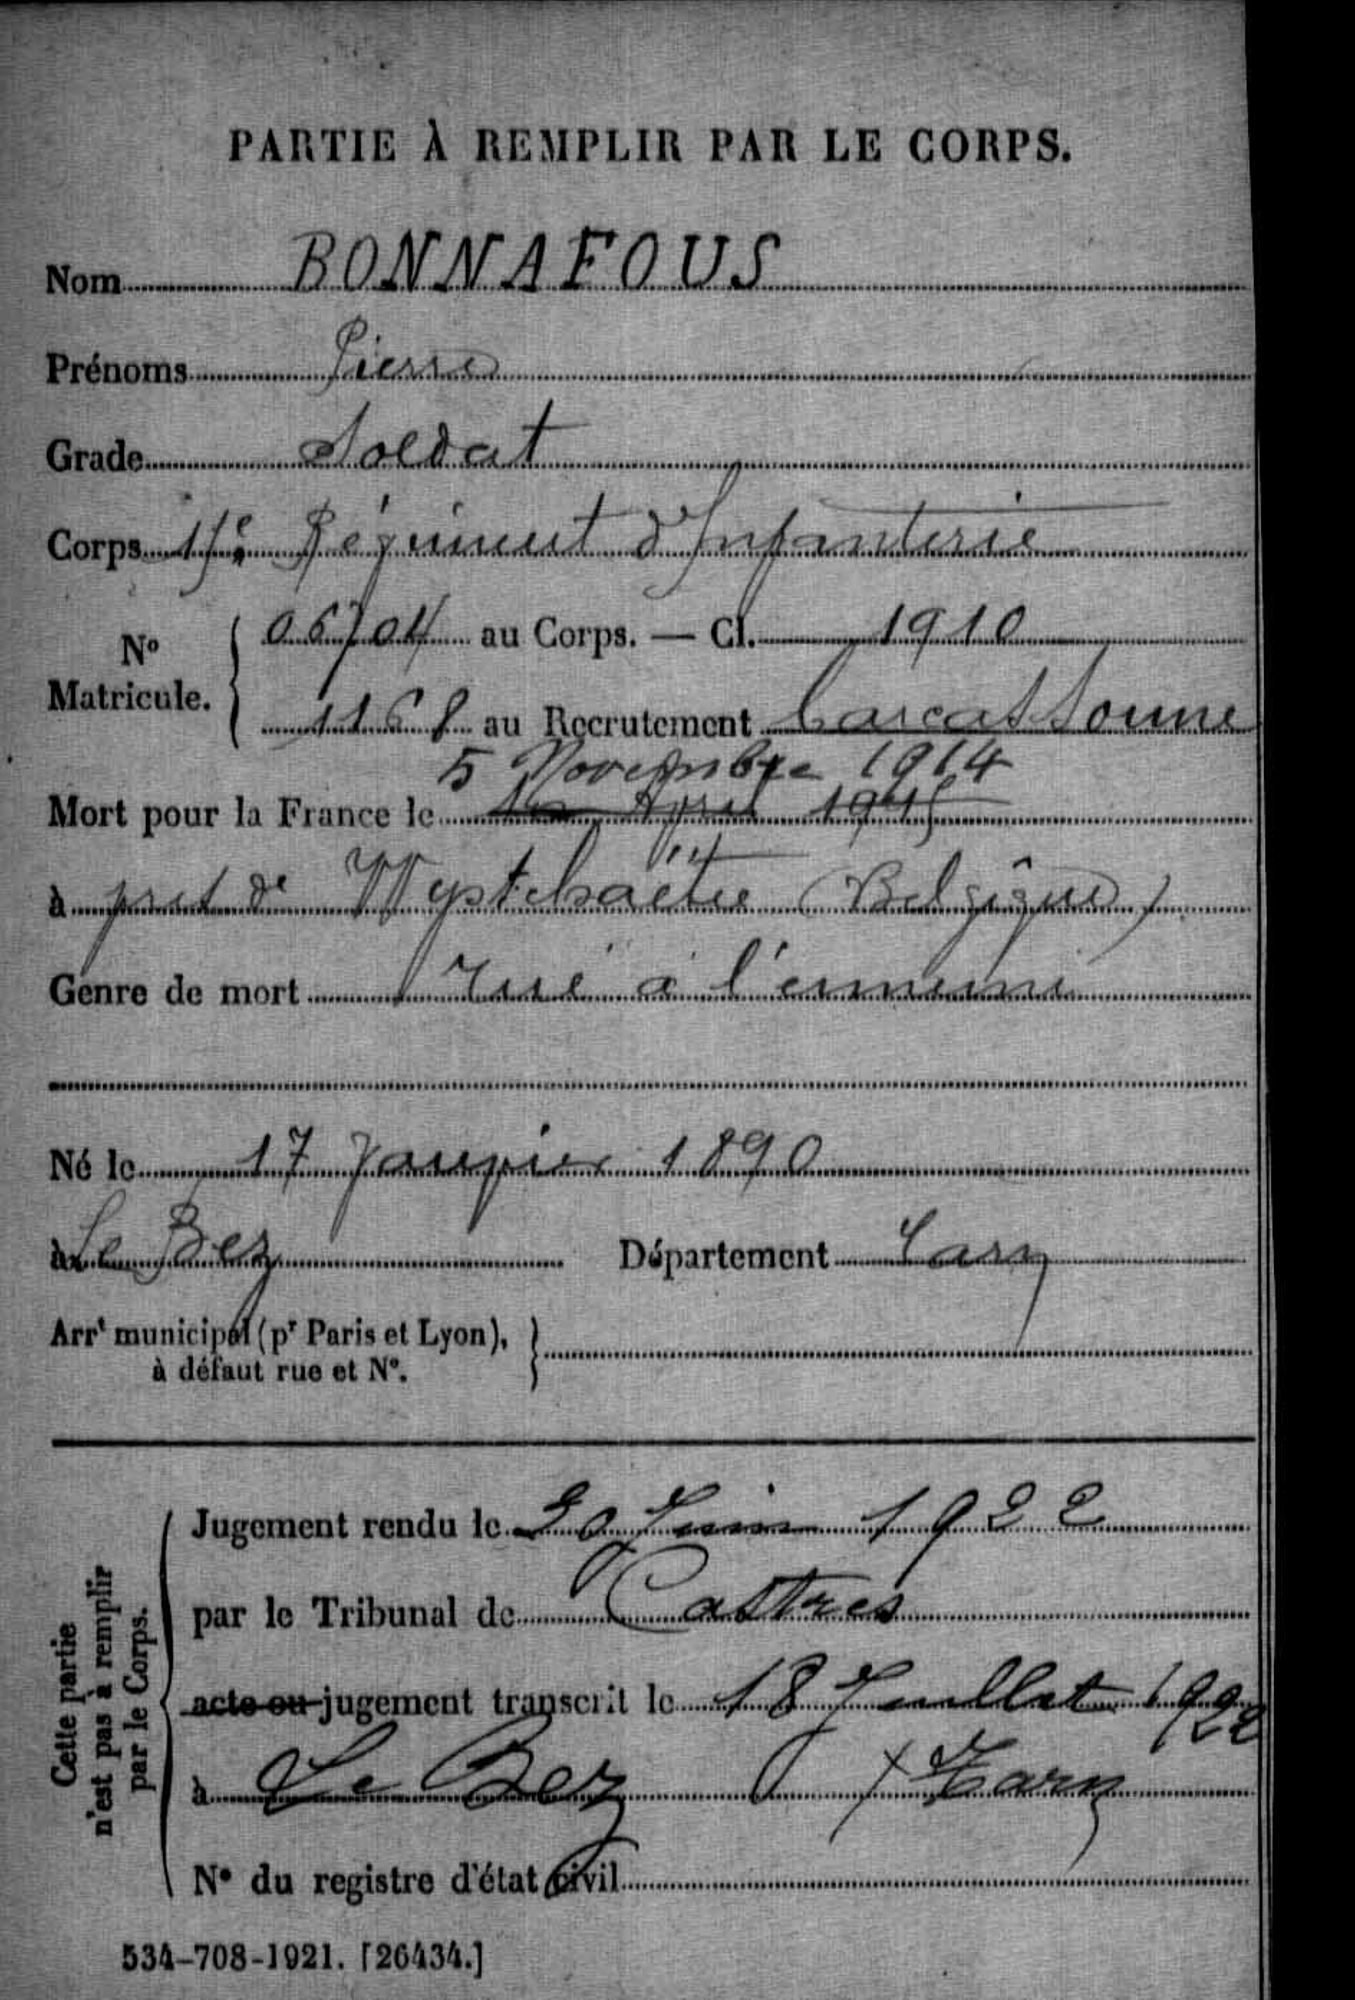 PARTIE À REMPLIR PAR LE CORPS.
Nom BONNAFOUS
Prénoms Pierre
Grade Soldat
Corps 15e Régiment d'Infanterie
No Matricule. 06704 au Corps. — Cl. 1910
1168 au Recrutement Carcassonne
5 Novembre 1914
Mort pour la France le Avril 1915
à pret de Wystchaëtte (Belgique)
Genre de mort Tué à l'ennemi
Né le 17 Janvier 1890
à Le Bez Département Tarn
Arrt municipal (pr Paris et Lyon),
à défaut rue et No.
Cette partie
n'est pas à remplir
par le Corps.
Jugement rendu le 20 Juin 1922
par le Tribunal de Castres
acte ou jugement transcrit le 18 Juillet 1922
à Le Bez (Tarn
No du registre d'état civil
534-708-1921. [26434.]